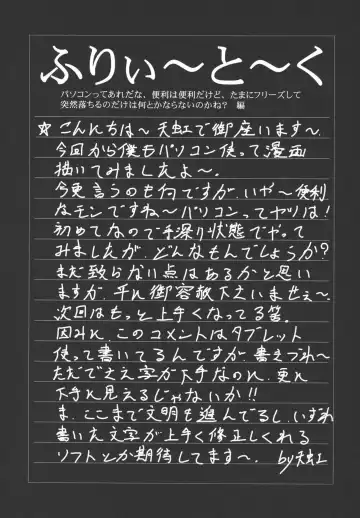 ふりぃ～と～く
パソコンってあれだな、便利は便利だけど、たまにフリーズして
突然落ちるのだけは何とかならないのかね？　編
☆こんにちは～天虹で御座います～
今回から僕もパソコン使って漫画
描いてみましたよ～。
今更言うのも何ですが、いや～便利
なモンですね～パソコンってヤツは！
初めてなので手探り状態でやって
みましたが、どんなもんでしょうか？
まだ致らない点はあるかと思い
ますが、平に御容赦下さいませぇ～。
次回はもっと上手くなってる筈。
因みに、このコメントはタブレット
使って書いてるんですが 書きづれ～
ただでさえ字が下手なのに、更に
下手に見えるじゃないか!!
ま、ここまで文明も進んでるし、いずれ
書いた文字が上手く修正してくれる
ソフトとか期待してます～。by天虹